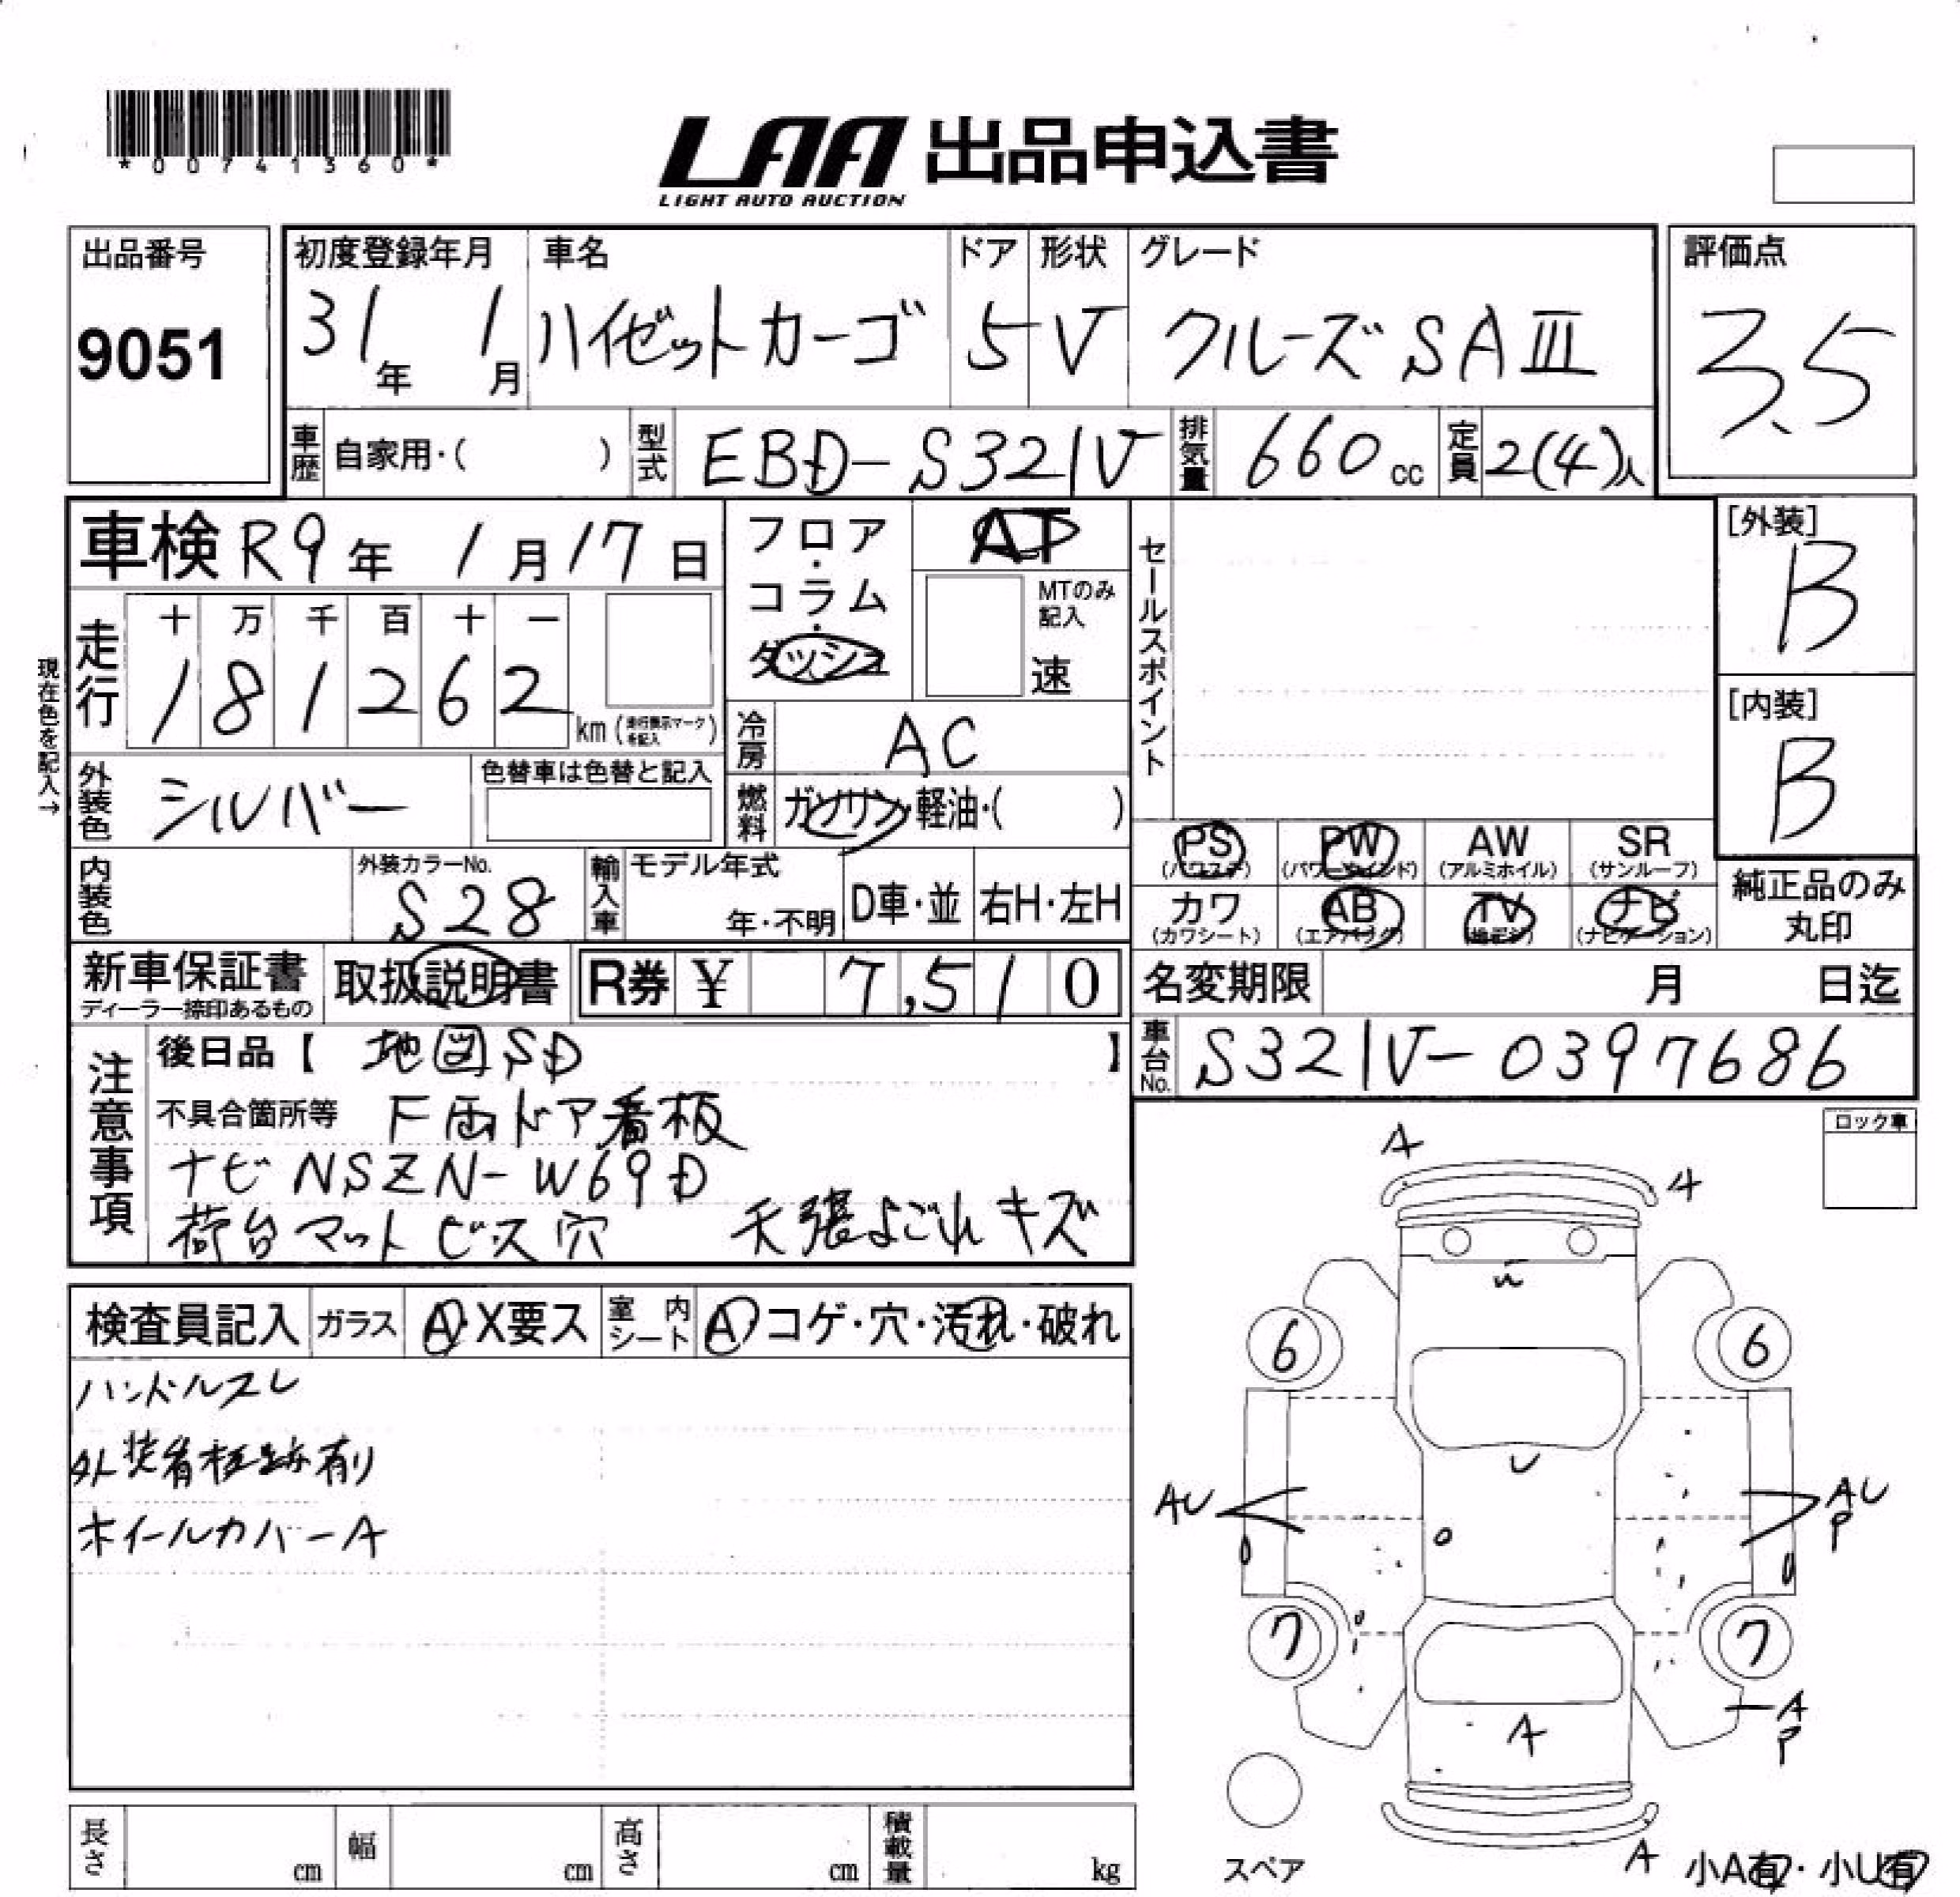 *00741360*
LAA 出品申込書
LIGHT AUTO AUCTION
出品番号
9051
初度登録年月
31年 1月
車名
ハイゼットカーゴ
ドア
5
形状
V
グレード
クルーズSAⅢ
評価点
3.5
車歴 自家用・( )
型式 EBD-S321V
排気量 660cc
定員 2(4)人
車検 R9年 1月17日
フロア・コラム・ダッシュ
AT
MTのみ記入
速
セールスポイント
[外装]
B
[内装]
B
走行
十 万 千 百 十 一
1 8 1 2 6 2 km (走行表示マークを記入)
現在色を記入→
冷房 AC
外装色 シルバー
色替車は色替と記入
燃料 ガソリン・軽油・( )
PS (パワステ)
PW (パワーウインド)
AW (アルミホイル)
SR (サンルーフ)
カワ (カワシート)
AB (エアバッグ)
TV (地デジ)
ナビ (ナビゲーション)
純正品のみ丸印
内装色
外装カラーNo.
S28
輸入車
モデル年式
年・不明
D車・並
右H・左H
新車保証書
ディーラー捺印あるもの
取扱説明書
R券 ¥ 7,510
名変期限 月 日迄
車台No. S321V-0397686
注意事項
後日品【 地図SD 】
不具合箇所等 F両ドア看板
ナビ NSZN-W69D
荷台マットビス穴 天張よごれキズ
ロック車
検査員記入
ガラス A・X要ス
室内シート A・コゲ・穴・汚れ・破れ
ハンドルスレ
外装看板跡有り
ホイールカバーA
A
4
6
6
U
AU
AU
P
7
7
A
P
A
A
スペア
小A有・小U有
長さ cm
幅 cm
高さ cm
積載量 kg